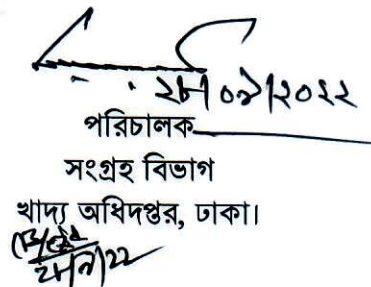 ২৮/০৯/২০২২
পরিচালক
সংগ্রহ বিভাগ
খাদ্য অধিদপ্তর, ঢাকা।
২৮/৯/২২